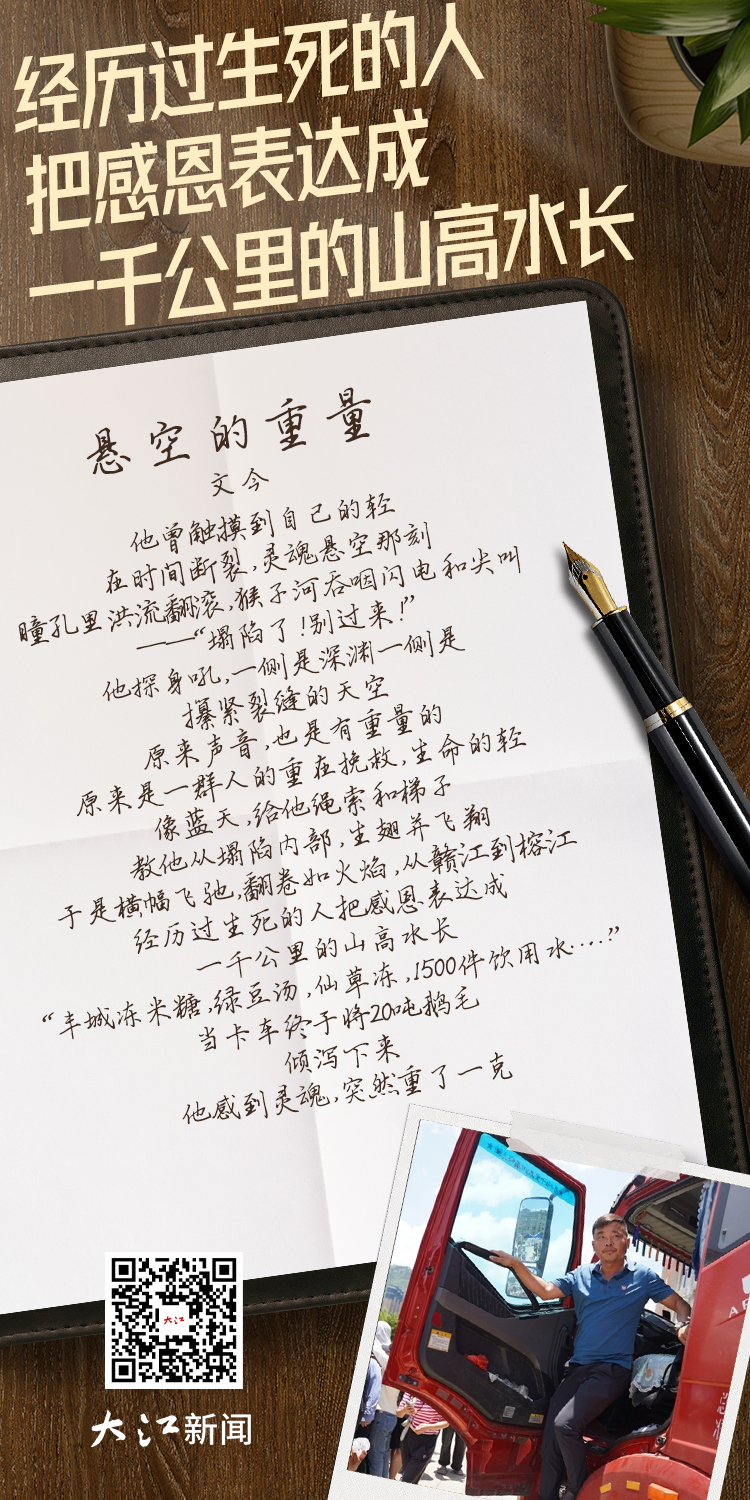 经历过生死的人
把感恩表达成
一千公里的山高水长
悬空的重量
文今
他曾触摸到自己的轻
在时间断裂,灵魂悬空那刻
瞳孔里洪流翻滚,猴子河吞咽闪电和尖叫
——“塌陷了!别过来!”
他探身吼,一侧是深渊一侧是
攥紧裂缝的天空
原来声音,也是有重量的
原来是一群人的重在挽救,生命的轻
像蓝天,给他绳索和梯子
教他从塌陷内部,生翅并飞翔
于是横幅飞驰,翻卷如火焰,从赣江到榕江
经历过生死的人把感恩表达成
一千公里的山高水长
“丰城冻米糖,绿豆汤,仙草冻,1500件饮用水····?”
当卡车终于将20吨鹅毛
倾泻下来
他感到灵魂,突然重了一克
大江
大江新闻